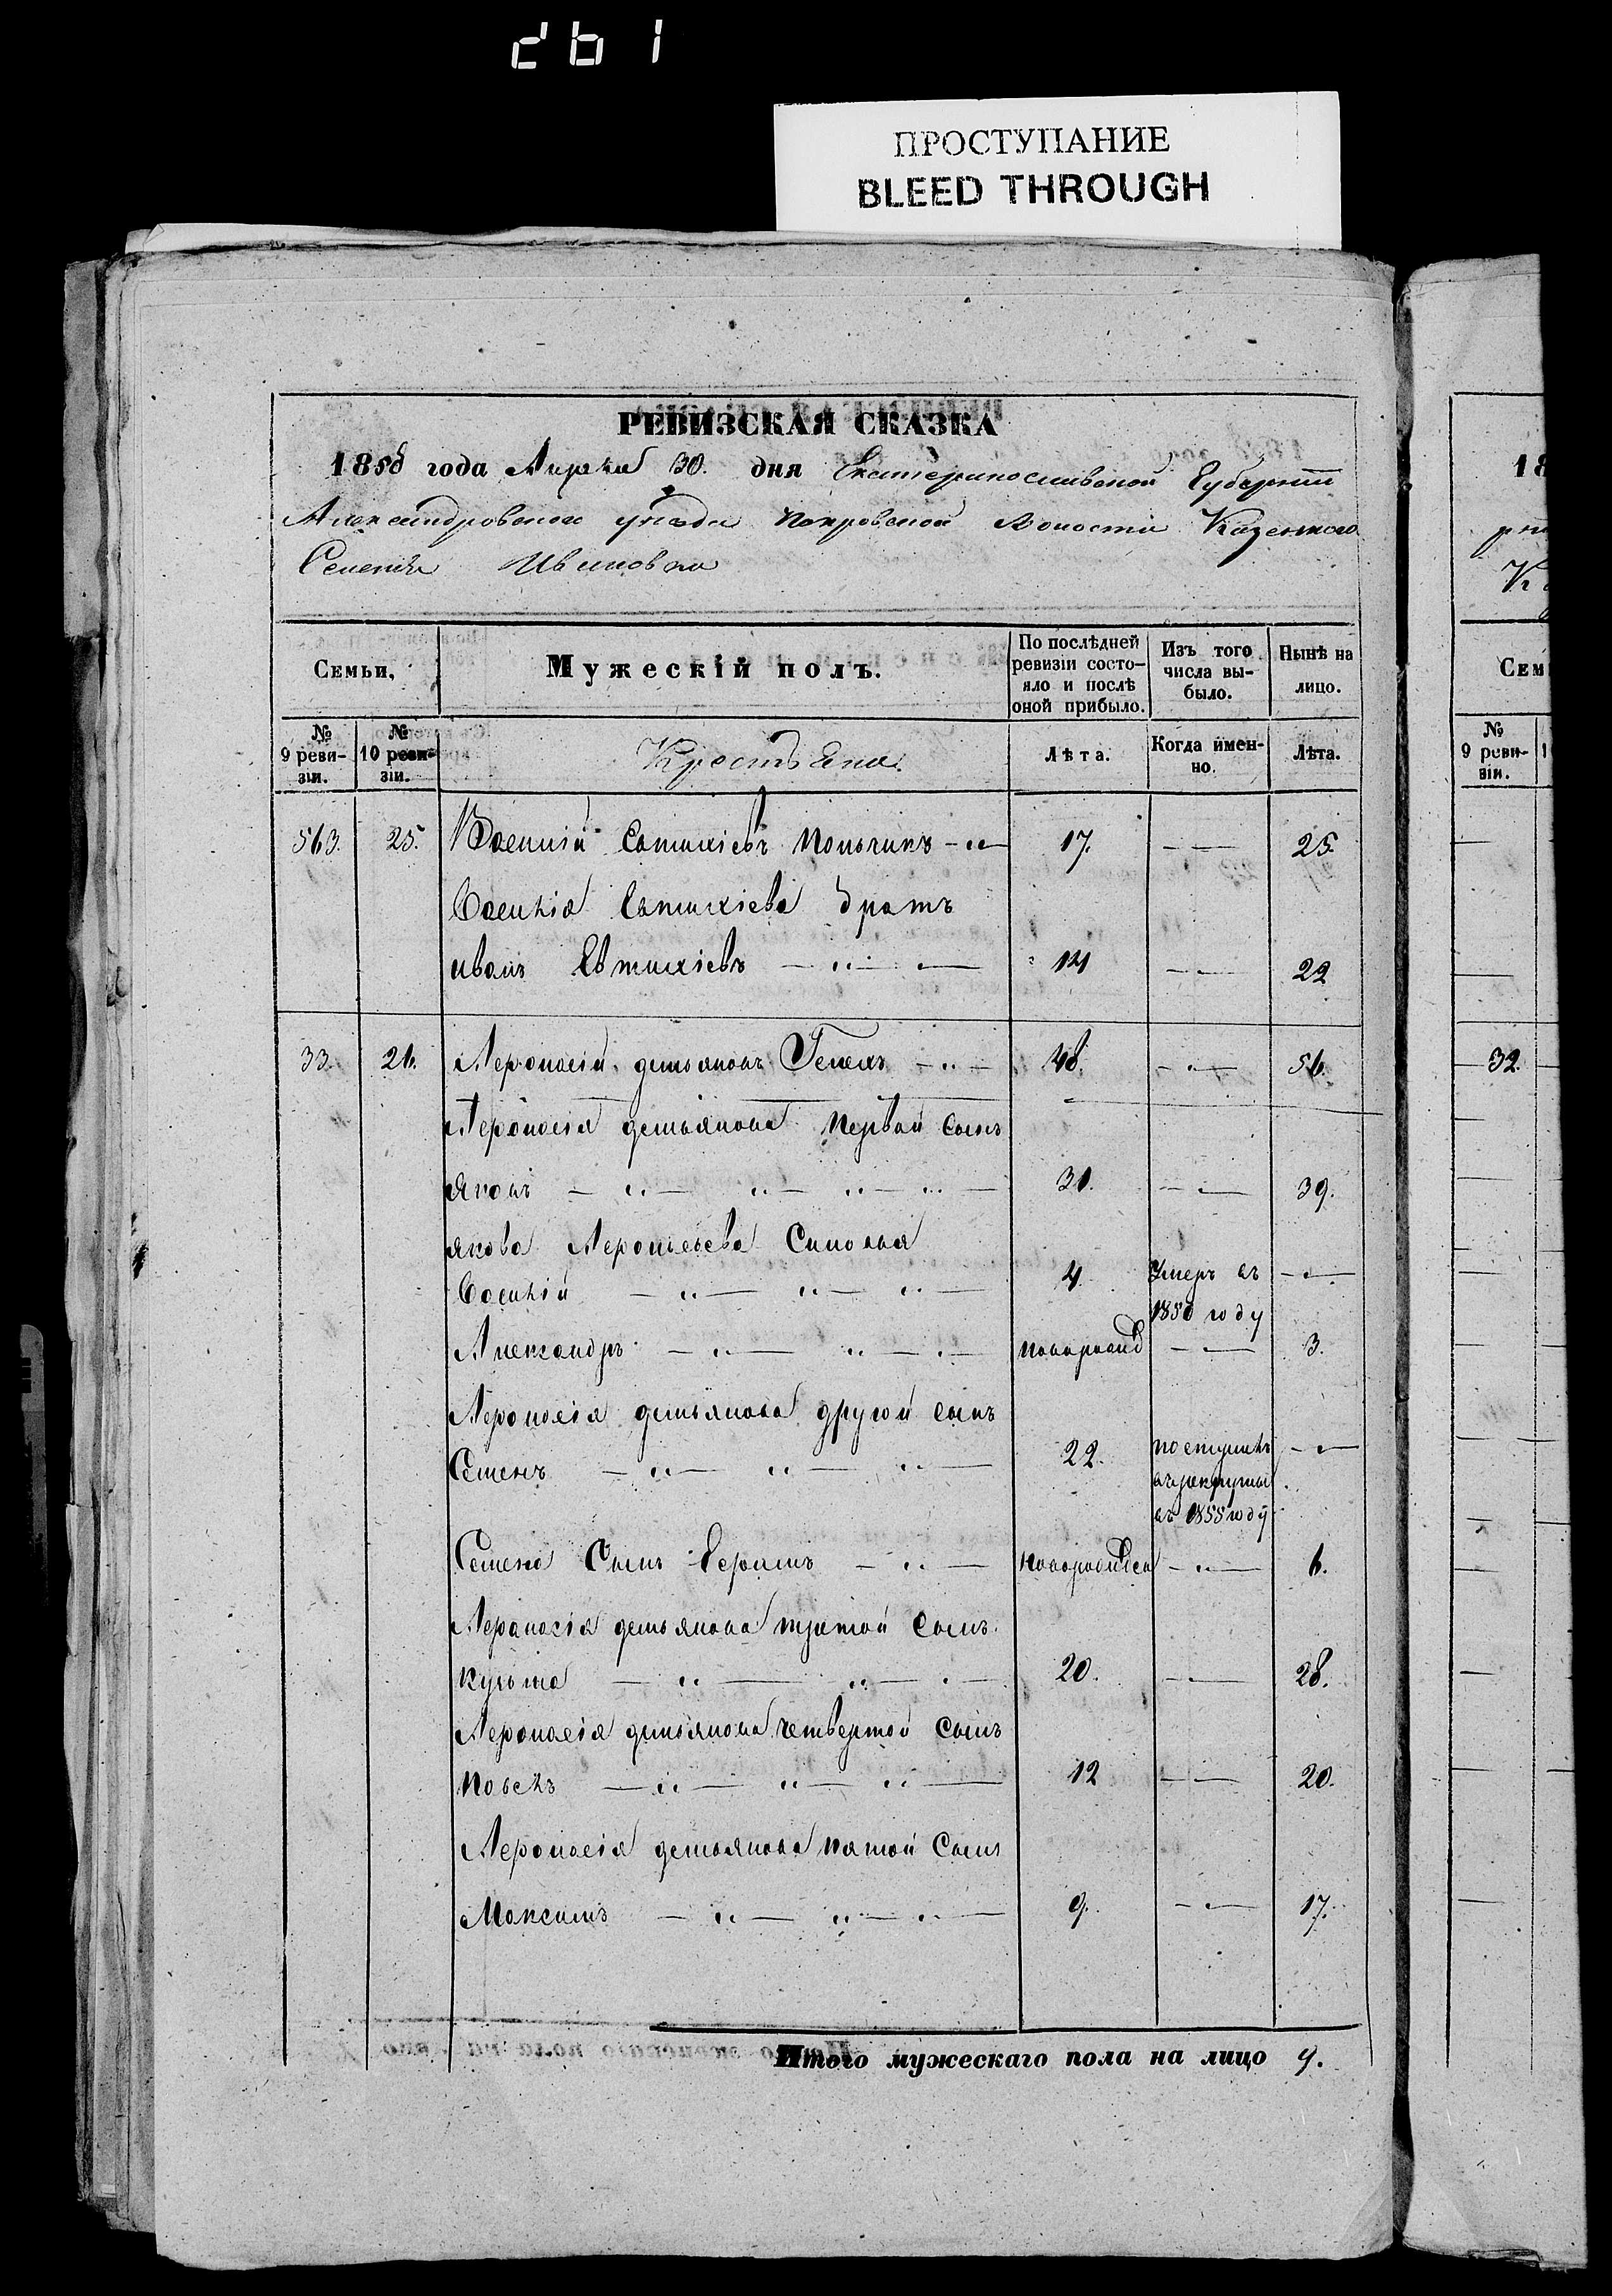 261
ПРОСТУПАНИЕ
BLEED THROUGH
РЕВИЗСКАЯ СКАЗКА
1858 года Апреля 30. дня Екатеринославской Губернии
Александровского уезда Покровской Волости Казенного
Селения Ивановки
Семьи,
Мужескій полъ.
По послѣдней ревизіи состо-яло и послѣ оной прибыло.
Изъ того числа вы-было.
Нынѣ на лицо.
№ 9 реви-зіи.
№ 10 реви-зіи.
Крестьяне.
Лѣта.
Когда имен-но.
Лѣта.
563. 25. Василій Евтихіевъ 17. 25.
Василія Евтихіева братъ
иванъ Евтихіевъ 14 22
33. 26. демьяновъ 48. 56.
демьянова первый сынъ
Яковъ 31. 39.
якова Сыновья
Василій 4 Умеръ въ
1850 году
Александръ новорожд 3.
демьянова другой сынъ
Семенъ 22. поступилъ
въ рекруты
въ 1855 году
Семена Сынъ новорожден 6.
демьянова третій Сынъ.
кузьма 20. 28.
демьянова четвертой Сынъ
павелъ 12 20.
демьянова пятой Сынъ
Максимъ 9. 17.
Итого мужескаго пола на лицо 9.
18
Сем
№ 9 реви-зіи.
32.